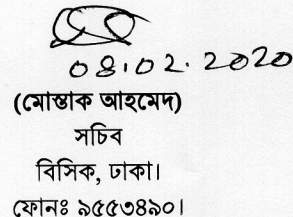 08.02.2020
(মোস্তাক আহমেদ)
সচিব
বিসিক, ঢাকা।
ফোনঃ ৯৫৫৩৪৯০।